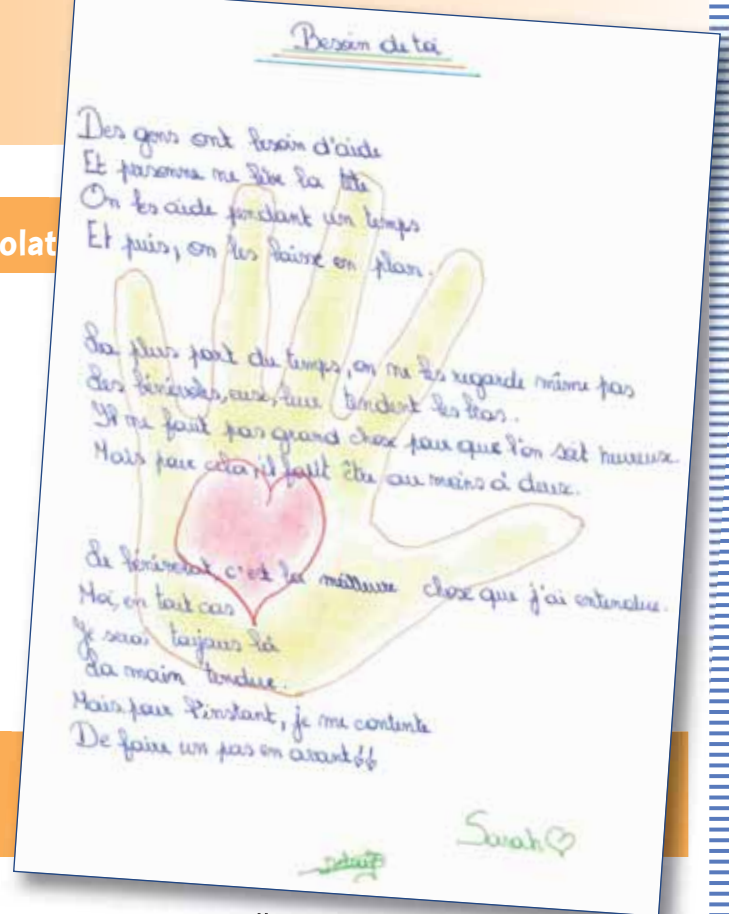 Besoin de toi
Des gens ont besoin d'aide
Et personne ne lève la tête
On les aide pendant un temps
Et puis, on les laisse en plan.
La plus part du temps, on ne les regarde même pas
Les bénévoles, eux, leur tendent les bras.
Il ne faut pas grand chose pour que l'on soit heureux.
Mais pour cela, il faut être au moins à deux.
Le bénévolat, c'est la meilleure chose que j'ai entendue.
Moi, en tout cas
Je serai toujours là
La main tendue.
Mais pour l'instant, je me contente
De faire un pas en avant!!
Sarah
olat